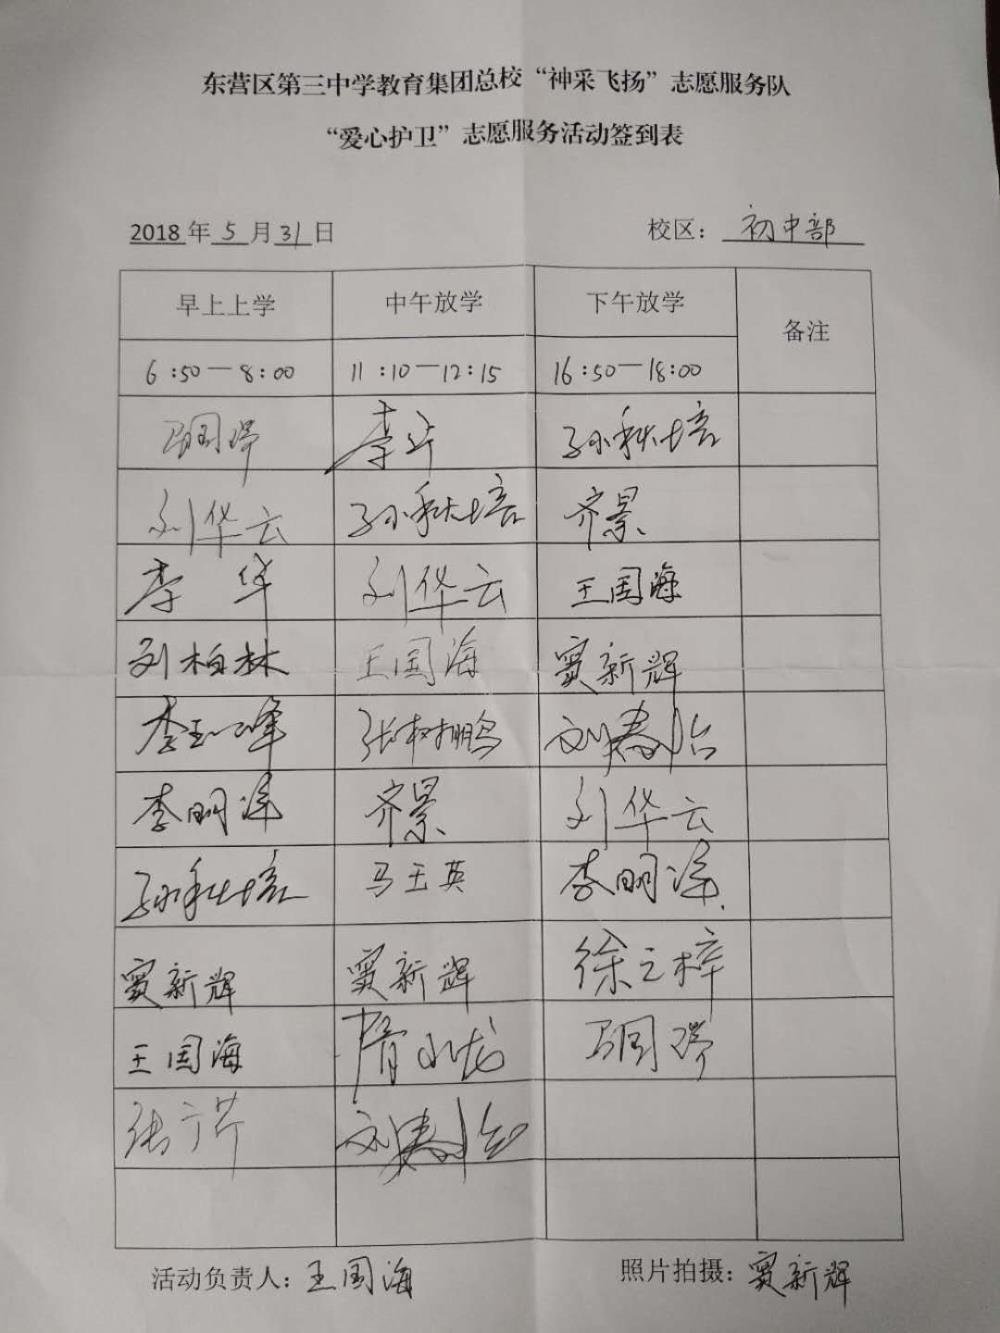 东营区第三中学教育集团总校“神采飞扬”志愿服务队
“爱心护卫”志愿服务活动签到表
2018年5月31日 校区：初中部
早上上学 中午放学 下午放学 备注
6:50—8:00 11:10—12:15 16:50—18:00
孙秋培
刘华云 孙秋培 齐景
李华 刘华云 王国海
刘柏林 王国海 窦新辉
李玉峰 张树鹏 刘春治
李明洋 齐景 刘华云
孙秋培 马玉英 李明洋
窦新辉 窦新辉 徐之梓
王国海 隋小龙
张广芹 刘春治
活动负责人：王国海 照片拍摄：窦新辉